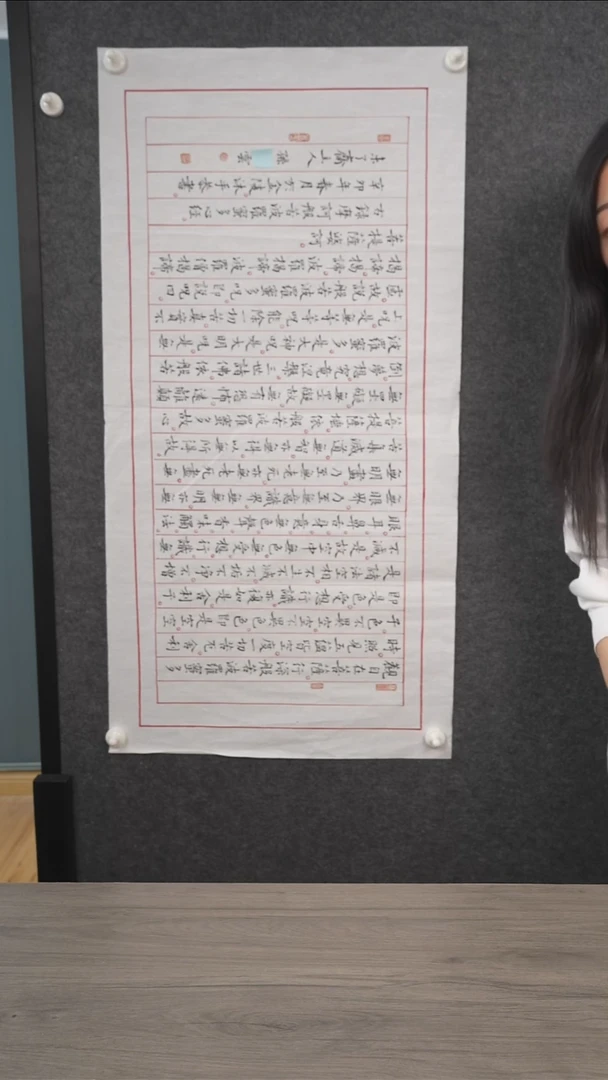 觀自在菩薩行深般若波羅蜜多
時照見五蘊皆空度一切苦厄舍利
子色不異空空不異色色即是空空
即是色受想行識亦復如是舍利子
是諸法空相不生不滅不垢不淨不增
不減是故空中無色無受想行識無
眼耳鼻舌身意無色聲香味觸法
無眼界乃至無意識界無無明亦
無明盡乃至無老死亦無老死盡無
苦集滅道無智亦無得以無所得故
菩提薩埵依般若波羅蜜多故心
無罣礙無罣礙故無有恐怖遠離顛
倒夢想究竟涅槃三世諸佛依般若
波羅蜜多是大神咒是大明咒是無
上咒是無等等咒能除一切苦真實不
虛故說般若波羅蜜多咒即說咒曰
揭諦揭諦波羅揭諦波羅僧揭諦
菩提薩婆訶
右錄摩訶般若波羅蜜多心經
辛卯年春月於金陵沐手恭書
未了齋主人